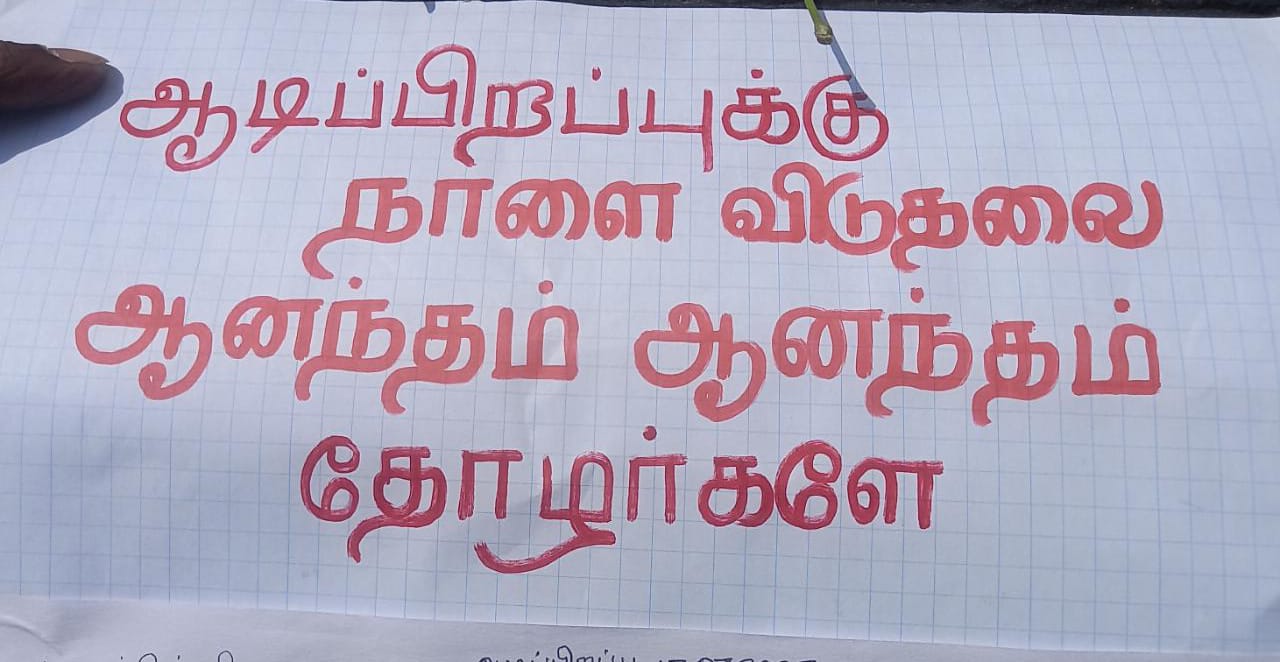 ஆடிப்பிறப்புக்கு
நாளை விடுதலை
ஆனந்தம் ஆனந்தம்
தோழர்களே